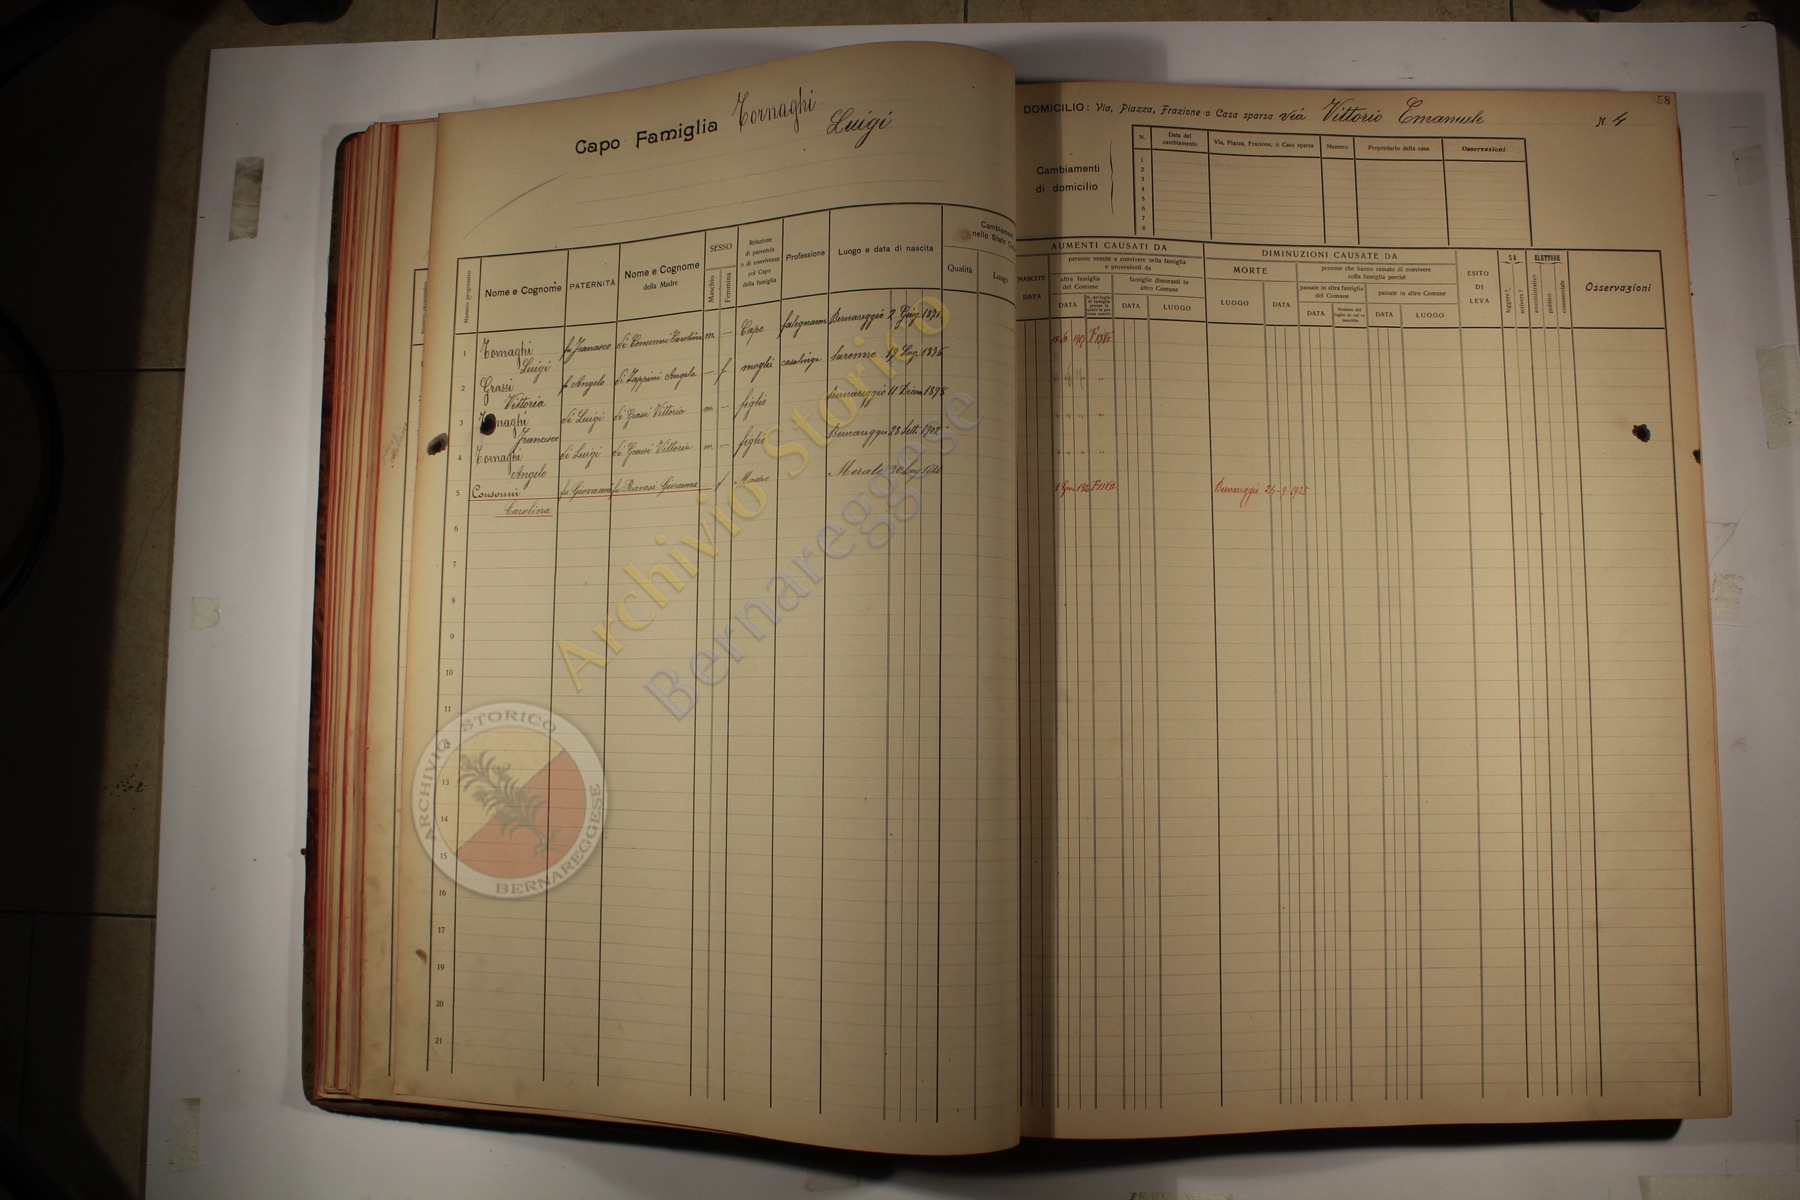 Capo Famiglia Tornaghi
Luigi
58
DOMICILIO: Via, Piazza, Frazione o Casa sparsa Via Vittorio Emanuele N. 4
Cambiamenti
di domicilio
N. Data del cambiamento Via, Piazza, Frazione, o Casa sparsa Numero Proprietario della casa Osservazioni
1
2
3
4
5
6
7
8
Numero progressivo
Nome e Cognome
PATERNITÀ
Nome e Cognome
della Madre
SESSO
Maschio
Femmina
Relazione
di parentela
o di convivenza
col Capo
della famiglia
Professione
Luogo e data di nascita
Cambiamenti
nello Stato
Qualità
Luogo
NASCITE
DATA
AUMENTI CAUSATI DA
persone venute a convivere nella famiglia
e provenienti da
altra famiglia
del Comune
famiglie dimoranti in
altro Comune
DATA
DATA
LUOGO
DIMINUZIONI CAUSATE DA
MORTE
persone che hanno cessato di convivere
colla famiglia perchè
passate in altra famiglia
del Comune
passate in altro Comune
LUOGO
DATA
DATA
DATA
LUOGO
ESITO
DI
LEVA
SA
leggere?
scrivere?
ELETTORE
amministrativo
politico
commerciale
Osservazioni
1 Tornaghi Luigi fu Francesco di Consonni Carolina m — Capo falegname Bernareggio 2 Giug. 1871
2 Grassi Vittoria f Angelo di Zappini Angela — f moglie casalinga Saronno 19 Lug.
3 Tornaghi Francesco di Luigi di Grassi Vittoria m — figlio Bernareggio 11 Dicem 1898
4 Tornaghi Angelo di Luigi di Grassi Vittoria m — figlio Bernareggio 28 Sett. 1902
5 Consonni Carolina fu Giovanni fu Ravasi Giovanna — f Madre Merate Bernareggio 26-9-1925
6
7
8
9
10
11
12
13
14
15
16
17
19
20
21
Archivio Storico
Bernareggese
ARCHIVIO STORICO
BERNAREGGESE